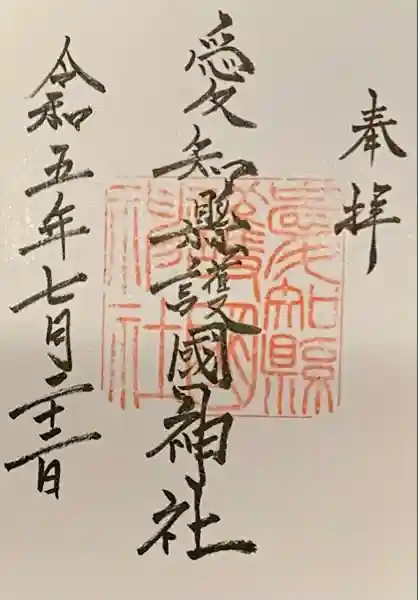 奉拝
愛知縣護國神社
愛知縣護國神社
令和五年七月二十二日